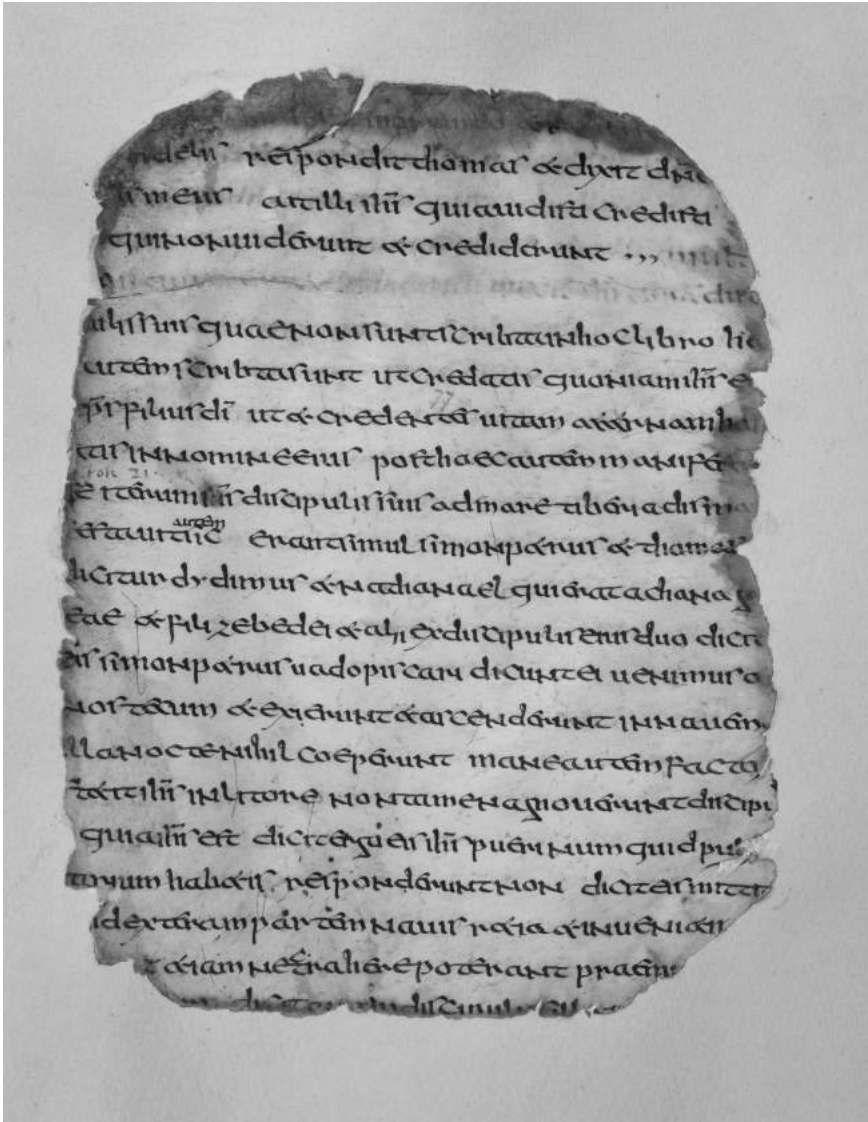 fidelis respondit thomas et dixit dn̄s
meus ait illi ih̄s quia uidisti credisti
qui non uiderunt et crediderunt ... mult
disc
pulis suis quae non sunt scribta in hoc libro hec
autem scribta sunt ut credatis quoniam ih̄s e
xp̄s filius dī ut et credentes uitam aeternam ha
tis in nomine eius post haec autem manifes
ioh 21.
se iterum ih̄s discipulis suis ad mare tiberiadis ma
autem
estauit sic erant simul simon petrus et thomas
dicitur dydimus et nathanael qui erat a chana g
eae et fili zebedei et alii ex discipulis eius duo dicit
eis simon petrus uado piscari dicunt ei uenimus
nos tecum et exierunt et ascenderunt in nauem
lla nocte nihil coeperunt mane autem facto
stetit ih̄s in litore non tamen agnouerunt discipu
quia ih̄s est dicit ergo eis ih̄s pueri numquid pul
habetis respondérunt non dicit eis mitti
dexteram partem nauis retia et inuenietis
et iam nec trahere poterant prae